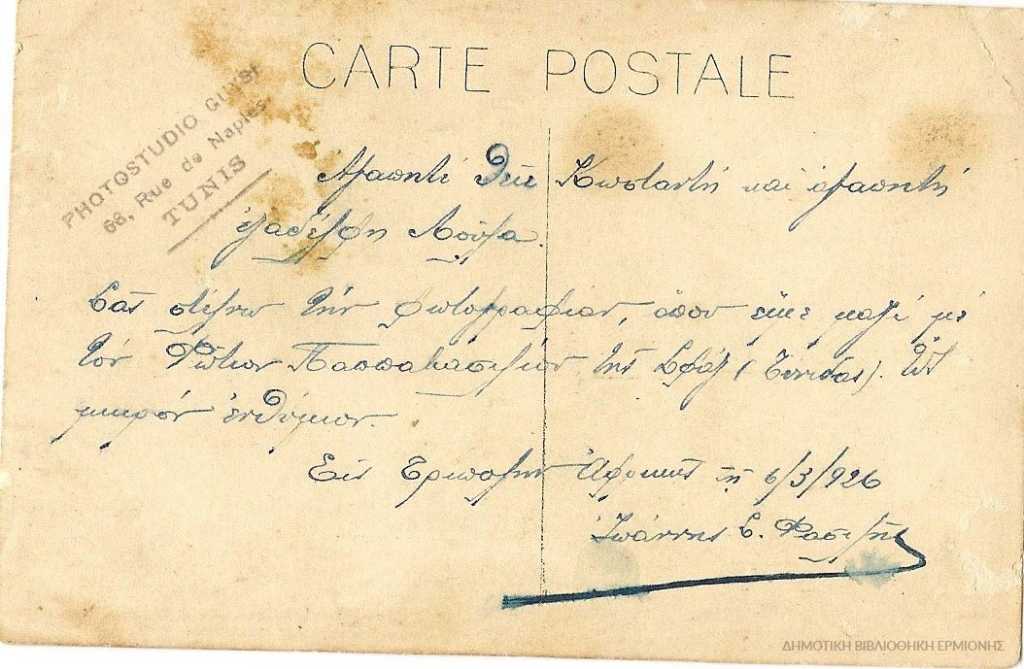 CARTE POSTALE
PHOTOSTUDIO
68, Rue de Naples
TUNIS
Αγαπητέ Θείε Κωσταντή και αγαπητή
εξαδέλφη Λούλα.
Σας στέλνω την φωτογραφίαν, οπου είμε μαζί με
τον Φώτιον Παππαβασιλείου της Σφάξ (Τύνιδας). Ως
μικρόν ενθύμιον.
Εις Τρίπολην Αφρικής τη 6/3/926
Ιωάννης Φασιλής
ΔΗΜΟΤΙΚΗ ΒΙΒΛΙΟΘΗΚΗ ΕΡΜΙΟΝΗΣ